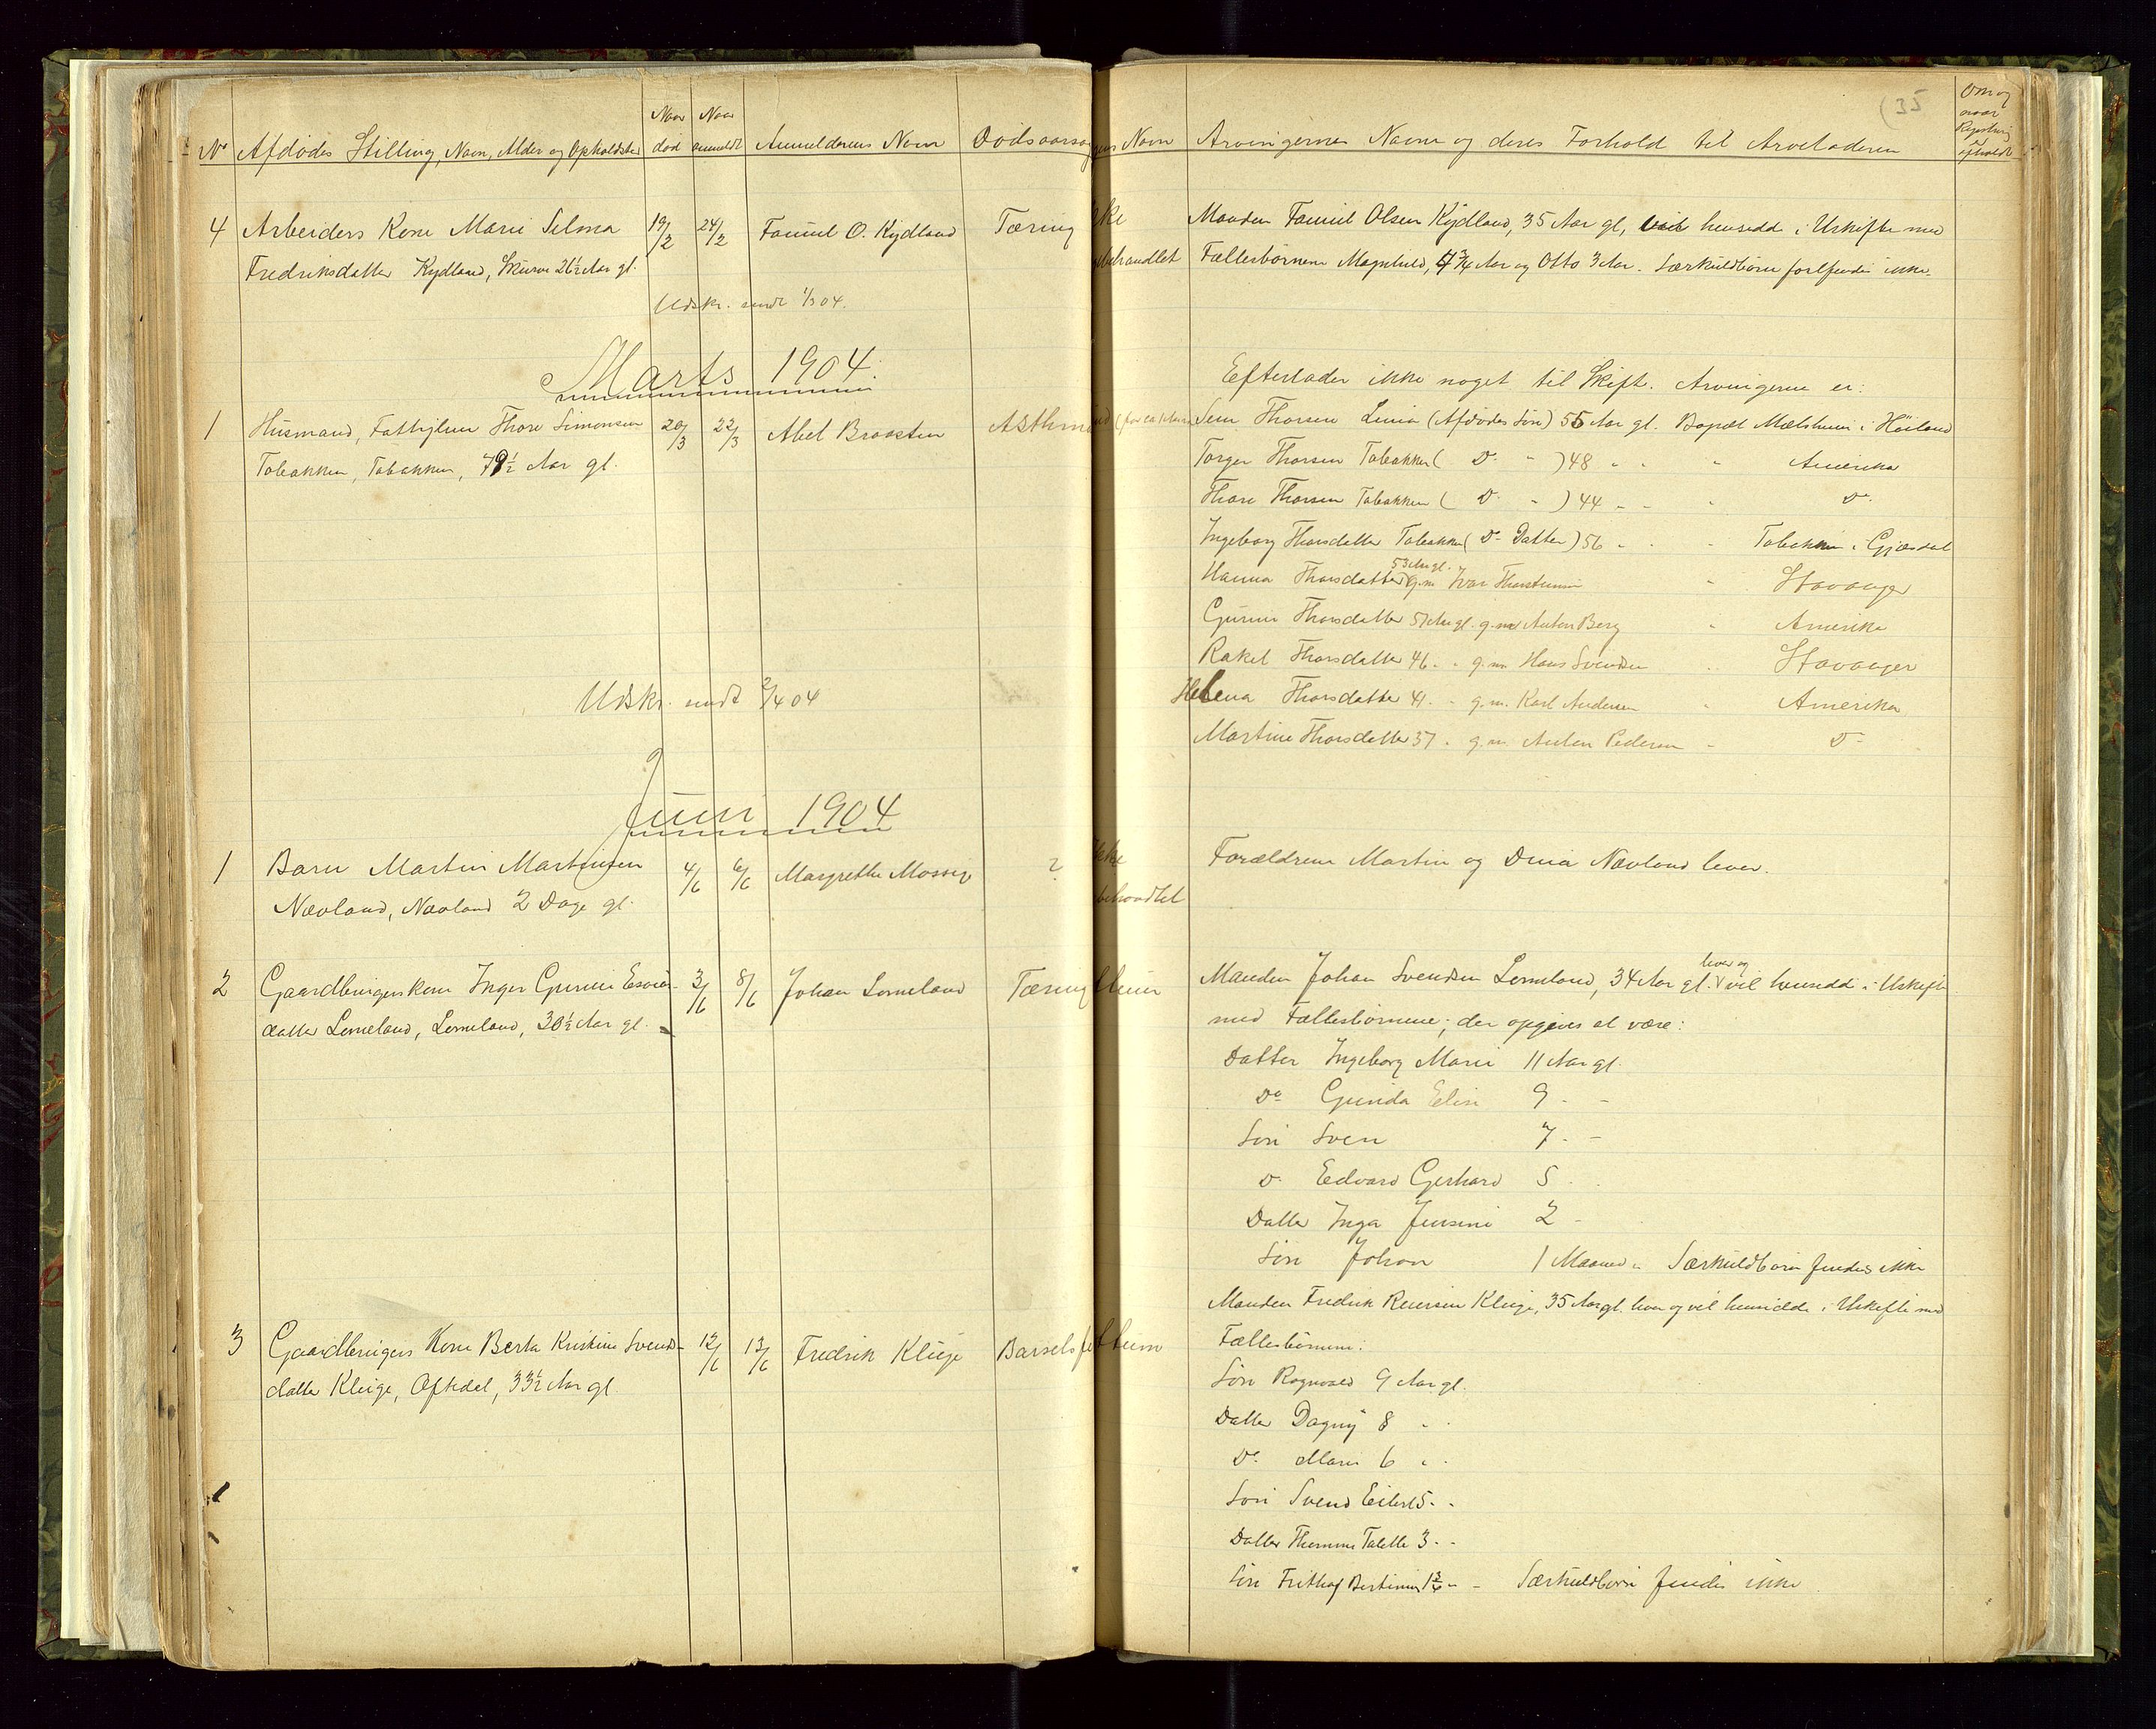 No Afdödes Stilling, Navn, Alder og Opholdsted
Naar död
Naar anmeldt
Anmelderens Navn
Dödsaarsag
4 Arbeiders Kone Marie Selma 19/2 24/2 Tamul O. Kydland Tæring
Fredriksdatter Kydland, Skurve 26 1/2 Aar gl.
Udskr. sendt 1/3 04.
Marts 1904.
1 Husmand, Fattiglem Thore Simonsen 20/3 22/3 Abel Braasten Asthma
Tobakken, Tobakken, 79 1/2 Aar gl.
Udskr. sendt 2/4 04
Juni 1904
1 Barn Martin Martinsen 4/6 6/6 Margrethe Mossige ?
Nævland, Nævland 2 Dage gl.
2 Gaardbrugerskone Inger Gurine 3/6 8/6 Johan Lomeland Tæring
datter Lomeland, Lomeland, 30 1/2 Aar gl.
3 Gaardbrugers Kone Berta Kristine Svends- 12/6 13/6 Fredrik Kluge Barselsfe
datter Kluge, Oftedal, 33 1/2 Aar gl.
(35
Navn
Arvingernes Navne og deres Forhold til Arveladeren
Om og naar Registrering er afholdt
Manden Tamul Olsen Kydland, 35 Aar gl, vil hensidde i Uskifte med
behandlet Fællesbörnene Magnhild, 4 3/4 Aar og Otto 3 Aar. Særkuldbörn forefindes ikke.
Efterlader ikke noget til Skift. Arvingerne er:
Thorsen Lima (Afdödes Sön) 55 Aar gl. Bopæl Mælsheim i Höiland
Torger Thorsen Tobakken ( Do " ) 48 " " " Amerika
Thore Thorsen Tobakken ( Do " ) 44 " " " Do
Ingeborg Thorsdatter Tobakken ( Do Datter) 56 " " " Tobakken i Gjesdal
53 Aar gl.
Hanna Thorsdatter g.m. Ivar Thorstensen " Stavanger
Gurine Thorsdatter 51 Aar gl. g.m. Anton Berg " Amerika
Rakel Thorsdatter 46 " " g.m. Hans Svendsen " Stavanger
Helena Thorsdatter 41 " " g.m. Karl Andersen " Amerika
Martine Thorsdatter 37 " g.m. Anton Pedersen " Do
Ikke
Forældrene Martin og Dina Nævland lever.
behandlet
lever og
Manden Johan Svendsen Lomeland, 34 Aar gl. vil hensidde i Uskifte
med Fællesbörnene; der opgives at være:
Datter Ingeborg Marie 11 Aar gl.
Do Gunda Elise 9 " "
Sön Sven 7 " "
Do Edvard Gerhard 5 "
Datter Inga Jensine 2 "
Sön Johan 1 Maaned " Særkuldbörn findes ikke
Manden Fredrik Reiersen Kluge, 35 Aar gl. lever og vil hensidde i Uskifte med
Fællesbörnene:
Sön Ragnvald 9 Aar gl.
Datter Dagny 8 " "
Do Marie 6 " "
Sön Svend Eilert 5 " "
Datter Talette 3 " "
Sön Frithjof Bertinius 1 3/4 " " Særkuldbörn findes ikke